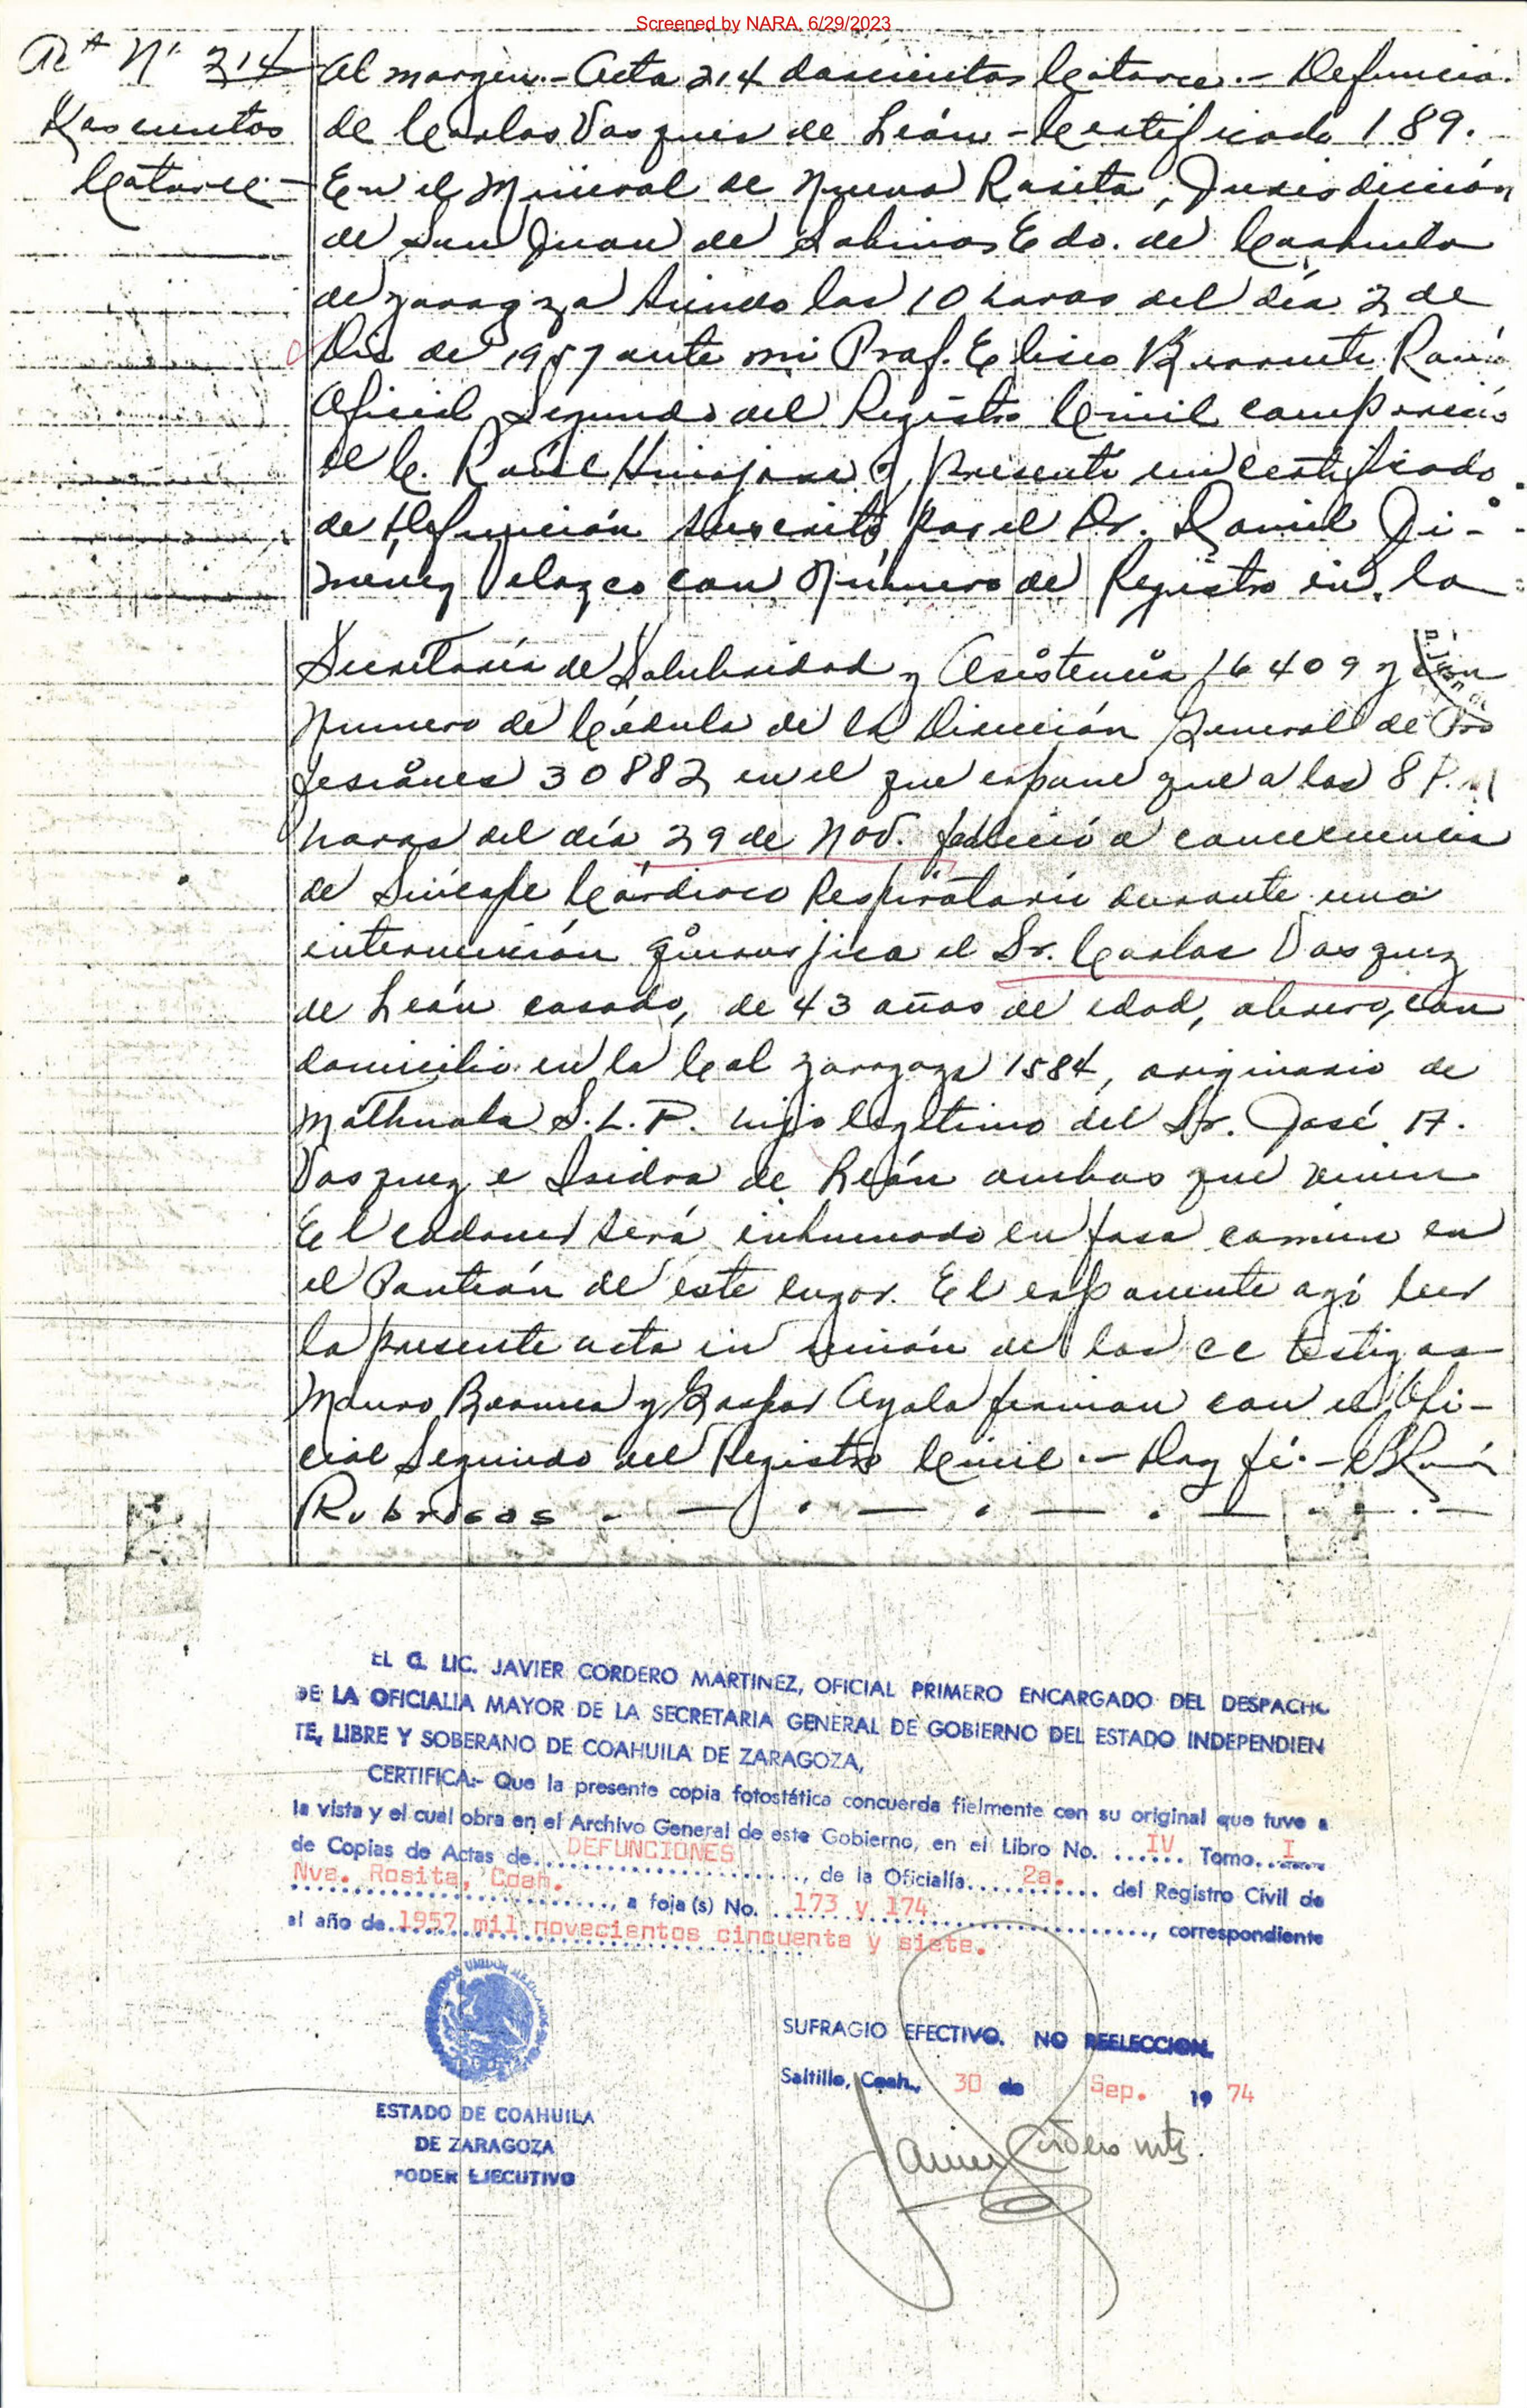 Screened by NARA, 6/29/2023
Acta Nº 214
Doscientos
Catorce
Al margen.- Acta 214 doscientos Catorce.- Defunción
de Carlos Vasquez de León - Certificado 189.
En el Mineral de Nueva Rosita, Jurisdicción
de San Juan de Sabinas Edo. de Coahuila
de Zaragoza siendo las 10 horas del día 2 de
Dic de 1957 ante mi Prof. Eliseo
Oficial Segundo del Registro Civil compareció
el C. Raúl Hinojosa y presentó un certificado
de Defunción suscrito por el Dr. Daniel Ji-
menez Velazco con Número de Registro en la
Secretaría de Salubridad y Asistencia 16409 y con
Numero de Cédula de la Dirección General de Pro
fesiónes 30882 en el que expone que a las 8 P.M
horas del día 29 de Nov. falleció a concecuencia
de Sincope Cárdiaco Respiratorio durante una
intervención el Sr. Carlos Vasquez
de León casado, de 43 años de edad, obrero, con
domicilio en la Cal Zaragoza 1584, originario de
Mathuala S.L.P. hijo legitimo del Sr. José A.
Vasquez e Isidra de León ambos que viven
El cadaver será inhumado en fosa común en
el Panteón de este lugar. El exponente
la presente acta en unión de los CC testigos
Mauro y Gaspar Ayala firman con el Ofi-
cial Segundo del Registro Civil.- Doy fé.-
Rubricas
EL C. LIC. JAVIER CORDERO MARTINEZ, OFICIAL PRIMERO ENCARGADO DEL DESPACHO
DE LA OFICIALIA MAYOR DE LA SECRETARIA GENERAL DE GOBIERNO DEL ESTADO INDEPENDIEN
TE, LIBRE Y SOBERANO DE COAHUILA DE ZARAGOZA,
CERTIFICA:- Que la presente copia fotostática concuerda fielmente con su original que tuve a
la vista y el cual obra en el Archivo General de este Gobierno, en el Libro No. ...IV... Tomo...I...
de Copias de Actas de...DEFUNCIONES..., de la Oficialía...2a.... del Registro Civil de
Nva. Rosita, Coah. ..., a foja (s) No. ...173 y 174..., correspondiente
al año de...1957 mil novecientos cincuenta y siete.
SUFRAGIO EFECTIVO. NO REELECCION.
Saltillo, Coah., 30 de Sep. 19 74
ESTADO DE COAHUILA
DE ZARAGOZA
PODER EJECUTIVO
Javier Cordero Mtz.